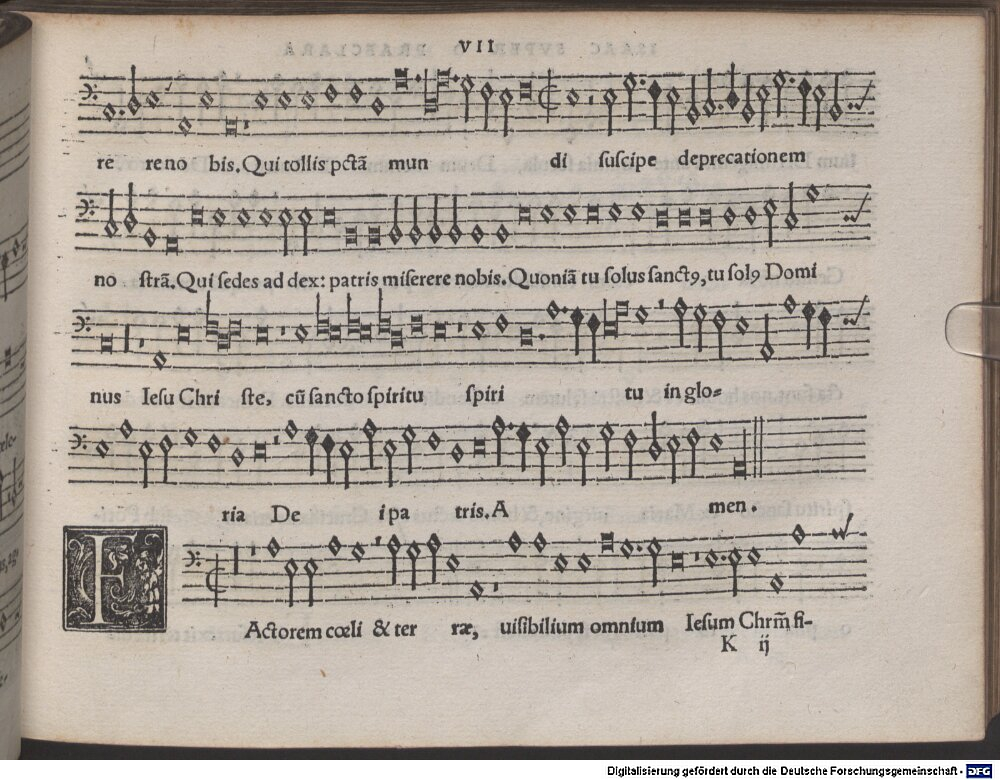 VII
re re no bis. Qui tollis pctã mun di suscipe deprecationem
no strã. Qui sedes ad dex: patris miserere nobis. Quoniã tu solus sanct9, tu sol9 Domi
nus Iesu Chri ste, cũ sancto spiritu spiri tu in glo-
ria De i pa tris. A men.
F
Actorem cœli & ter ræ, uisibilium omnium Iesum Chrm̃ fi-
K ij
Digitalisierung gefördert durch die Deutsche Forschungsgemeinschaft - DFG